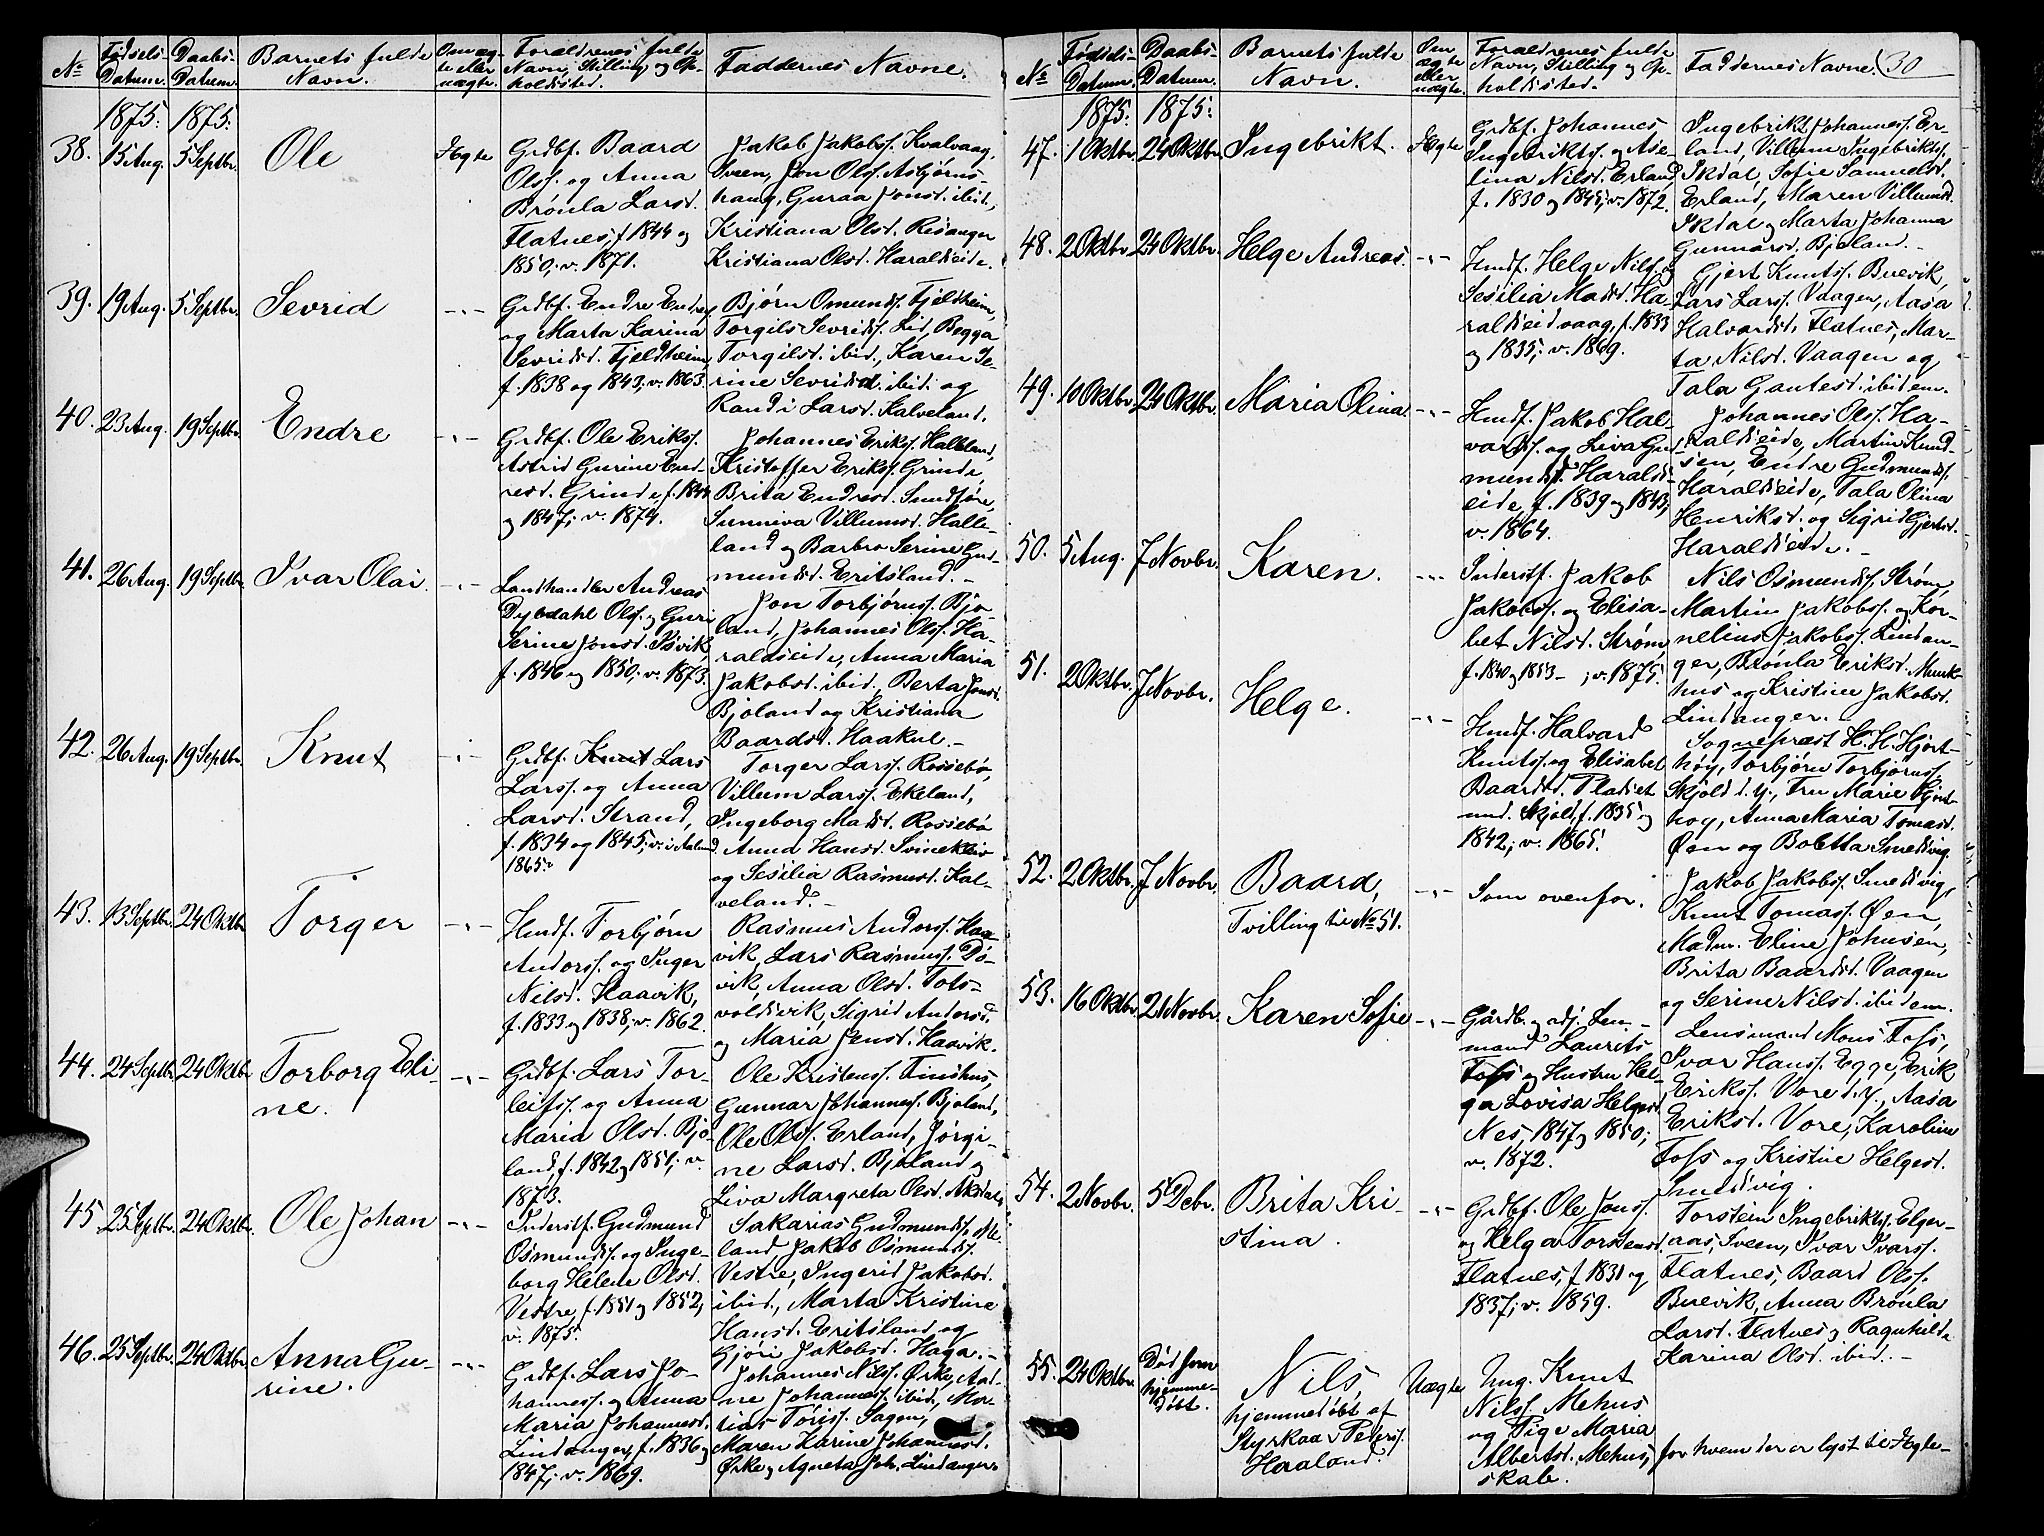 No
Fødsels-
Datum.
Daabs-
Datum.
Barnets fulde
Navn.
Om æg-
te eller
uægte.
Forældrenes fulde
Navn, Stilling og Op-
holdssted.
Faddernes Navne.
1875. 1875.
38. 15 Aug. 5 Septbr. Ole Ægte
Grdbf. Baard
Olss. og Anna
Brónla Larsd.
Flatnes, f. 1844 og
1850; v. 1871.
Jakob Jakobss. Kvalvaag,
Sveen, Jon Olss. Asbjørns-
haug, Guraa Jonsd. ibid,
Kristiana Olsd. Risanger
Kristiana Olsd. Haraldseide.
39. 19 Aug. 5 Septbr. Sevrid -"-
Grdbf. Endre Endres.
og Marta Karina
Sevridsd. Fjeldheim,
f. 1838 og 1843; v. 1863.
Bjørn Omunds. Fjeldheim,
Torgils Sevrids. Lid, Begga
Torgilsd. ibid, Karen Se-
rine Sevridsd. ibid. og
Randi Larsd. Kalveland.
40. 23 Aug. 19 Septbr. Endre -"-
Grdbf. Ole Erikss.
Astrid Gurine End-
resd. Grinde, f. 1844
og 1847; v. 1874.
Johannes Erikss. Halleland,
Kristoffer Erikss. Grinde,
Brita Endresd. Sundføre,
Sunniva Villumsd. Halle-
land og Barbro Serine Gud-
mundsd. Eritsland.-
41. 26 Aug. 19 Septbr. Ivar Olai. -"-
Landhandler Andreas
Dybdahl Olss. og Guri
Serine Jonsd. Isvik
f. 1846 og 1850; v. 1873.
Jon Torbjørnss. Bjo-
land, Johannes Olss. Ha-
raldseide, Anna Maria
Jakobsd. ibid, Berta Jonsd.
Bjoland og Kristiana
Baardsd. Haakul.-
42. 26 Aug. 19 Septbr. Knut -"-
Grdbf. Knut Lars
Larss. og Anna
Larsd. Strand,
f. 1834 og 1845; v.
1865.
Torger Larss. Rossebø,
Villum Larss. Ekeland,
Ingeborg Madsd. Rossebø
Anna Hansd. Svinekleiv
og Sesilia Rasmusd. Kal-
veland.-
43. 13 Septbr. 24 Oktbr. Torger -"-
Husdf. Torbjørn
Andorss. og Inger
Nilsd. Haavik,
f. 1833 og 1838; v. 1862.
Rasmus Andorss. Haa-
vik, Lars Rasmuss. Dø-
vik, Anna Olsd. Tots-
voldsvik, Sigrid Andorsd.
og Maria Jensd. Haavik.
44. 24 Septbr. 24 Oktbr. Torborg Eli-
ne. -"-
Grdbf. Lars Tor-
leifss. og Anna
Maria Olsd. Bjo-
land, f. 1842 og 1851; v.
1873.
Ole Kristenss. Finshus,
Gunnar Johanness. Bjoland,
Ole Olss. Erland, Jørgi-
ne Larsd. Bjoland og
Liva Margreta Olsd. Aksdal.
45. 25 Septbr. 24 Oktbr. Ole Johan -"-
Inderstf. Gudmund
Osmunds. og Inge-
borg Helene Olsd.
Vestre, f. 1851 og 1852,
v. 1875.
Sakarias Gudmunds.
land, Jakob Osmunds.
Vestre, Ingerid Jakobsd.
ibid., Marta Kristine
Hansd. Eritsland og
Gjøri Jakobsd. Haga.-
46. 25 Septbr. 24 Oktbr. Anna Gu-
rine. -"-
Grdbf. Lars Jo-
hanness. og Anna
Maria Johannesd.
Lindanger, f. 1836 og
1847; v. 1869.
Johannes Nilss. Ørke,
ne Johanness. ibid, Ma-
tias Tøriss. Sagen,
Maren Karine Johannesd.
Ørke og Agneta Joh. Lindanger.
No
Fødsels-
Datum.
Daabs-
Datum.
Barnets fulde
Navn.
Om
ægte
eller
uægte.
Forældrenes fulde
Navn, Stilling og Op-
holdssted.
Faddernes Navne. 30
1875. 1875.
47. 1 Oktbr. 24 Oktbr. Ingebrikt. Ægte
Grdbf. Johannes
Ingebriktss. og Ase-
lina Nilsd. Erland,
f. 1830 og 1845; v. 1872.
Ingebrikt Johanness. Er-
land, Villum Ingebriktss.
Ikdal, Sofie Samuelsd.
Erland, Maren Villumsd.
Ikdal og Marta Johanna
Gunnarsd. Bjoland.-
48. 2 Oktbr. 24 Oktbr. Helge Andreas. -"-
Husdf. Helge Nilss. og
Sesilia Madsd. Ha-
raldseidvaag, f. 1833
og 1835; v. 1869.
Gjert Knuts. Buevik,
Lars Larss. Vaagen, Aasa
Halvardsd. Flatnes, Mar-
ta Nilsd. Vaagen og
Tala Gautesd. ibidem.
49. 10 Oktbr. 24 Oktbr. Maria Olina. -"-
Husdf. Jakob Hal-
vardss. og Liva Gud-
mundsd. Haralds-
eide, f. 1839 og 1843;
v. 1864.
Johannes Olss. Ha-
raldseide, Martin Knud-
sen, Endre Gudmunds.
Haraldseide, Tala Olina
Henriksd. og Sigrid Gjertsd.
Haraldseide.-
50. 5 Aug. 7 Novbr. Karen. -"-
Inderstf. Jakob
Jakobss. og Elisa-
bet Nilsd. Strøm,
f. 1840 og 1853 - ; v. 1875.
Nils Osmunds. Strøm,
Martin Jakobss. og Kor-
nelius Jakobss. Lindan-
ger, Brónla Eriksd. Munk-
hus og Kristine Jakobsd.
Lindanger.
51. 2 Oktbr. 7 Novbr. Helge. -"-
Husdf. Halvard
Knuts. og Elisabet
Baardsd. Pladset
und. Skjold, f. 1835 og
1842; v. 1865.
Sognepræst H. H. Hjort-
høy, Torbjørn Torbjørnss.
Skjold d. y., Fru Marie Hjort-
høy, Anna Maria Tomasd.
Øen og Boletta Smedvig.
52. 2 Oktbr. 7 Novbr. Baard,
Tvilling til No 51. -"-
Som ovenfor.
Jakob Jakobss. Smedvig,
Knut Tomass. Øen,
Madm. Eline Johnsen,
Brita Baardsd. Vaagen
og Serine Nilsd. ibidem.
53. 16 Oktbr. 21 Novbr. Karen Sofie -"-
Gårdb. og adj. Len-
mand Laurits
Foss og Hustru Hel-
ga Lovisa Helgesd.
Nes, 1847 og 1850;
v. 1872.
Lensmand Mons Foss,
Ivar Hanss. Egge, Erik
Erikss. Vore d. y., Aasa
Eriksd. Vore, Karoline
Foss og Kristine Helgesd.
Smedvig.
54. 2 Novbr. 5 Decbr. Brita Kri-
stina. -"-
Grdbf. Ole Jonss.
og Helga Torstensd.
Flatnes, f. 1831 og
1837; v. 1859.
Torstein Ingebriktss. Elger-
aas, Sveen, Ivar Ivarss.
Flatnes, Baard Olss.
Buevik, Anna Brónla
Larsd. Flatnes og Ragnhilda
Karina Olsd. ibid.-
55. 24 Oktbr. Død som
hjemme-
døbt. Nils,
hjemmedøbt af
Styrkaa Peders.
Heraland. Uægte
Ung. Knut
Nilss. Mehus
og Pige Maria
Albertsd. Mehus, for hvem der er lyst til Ægte-
skab.